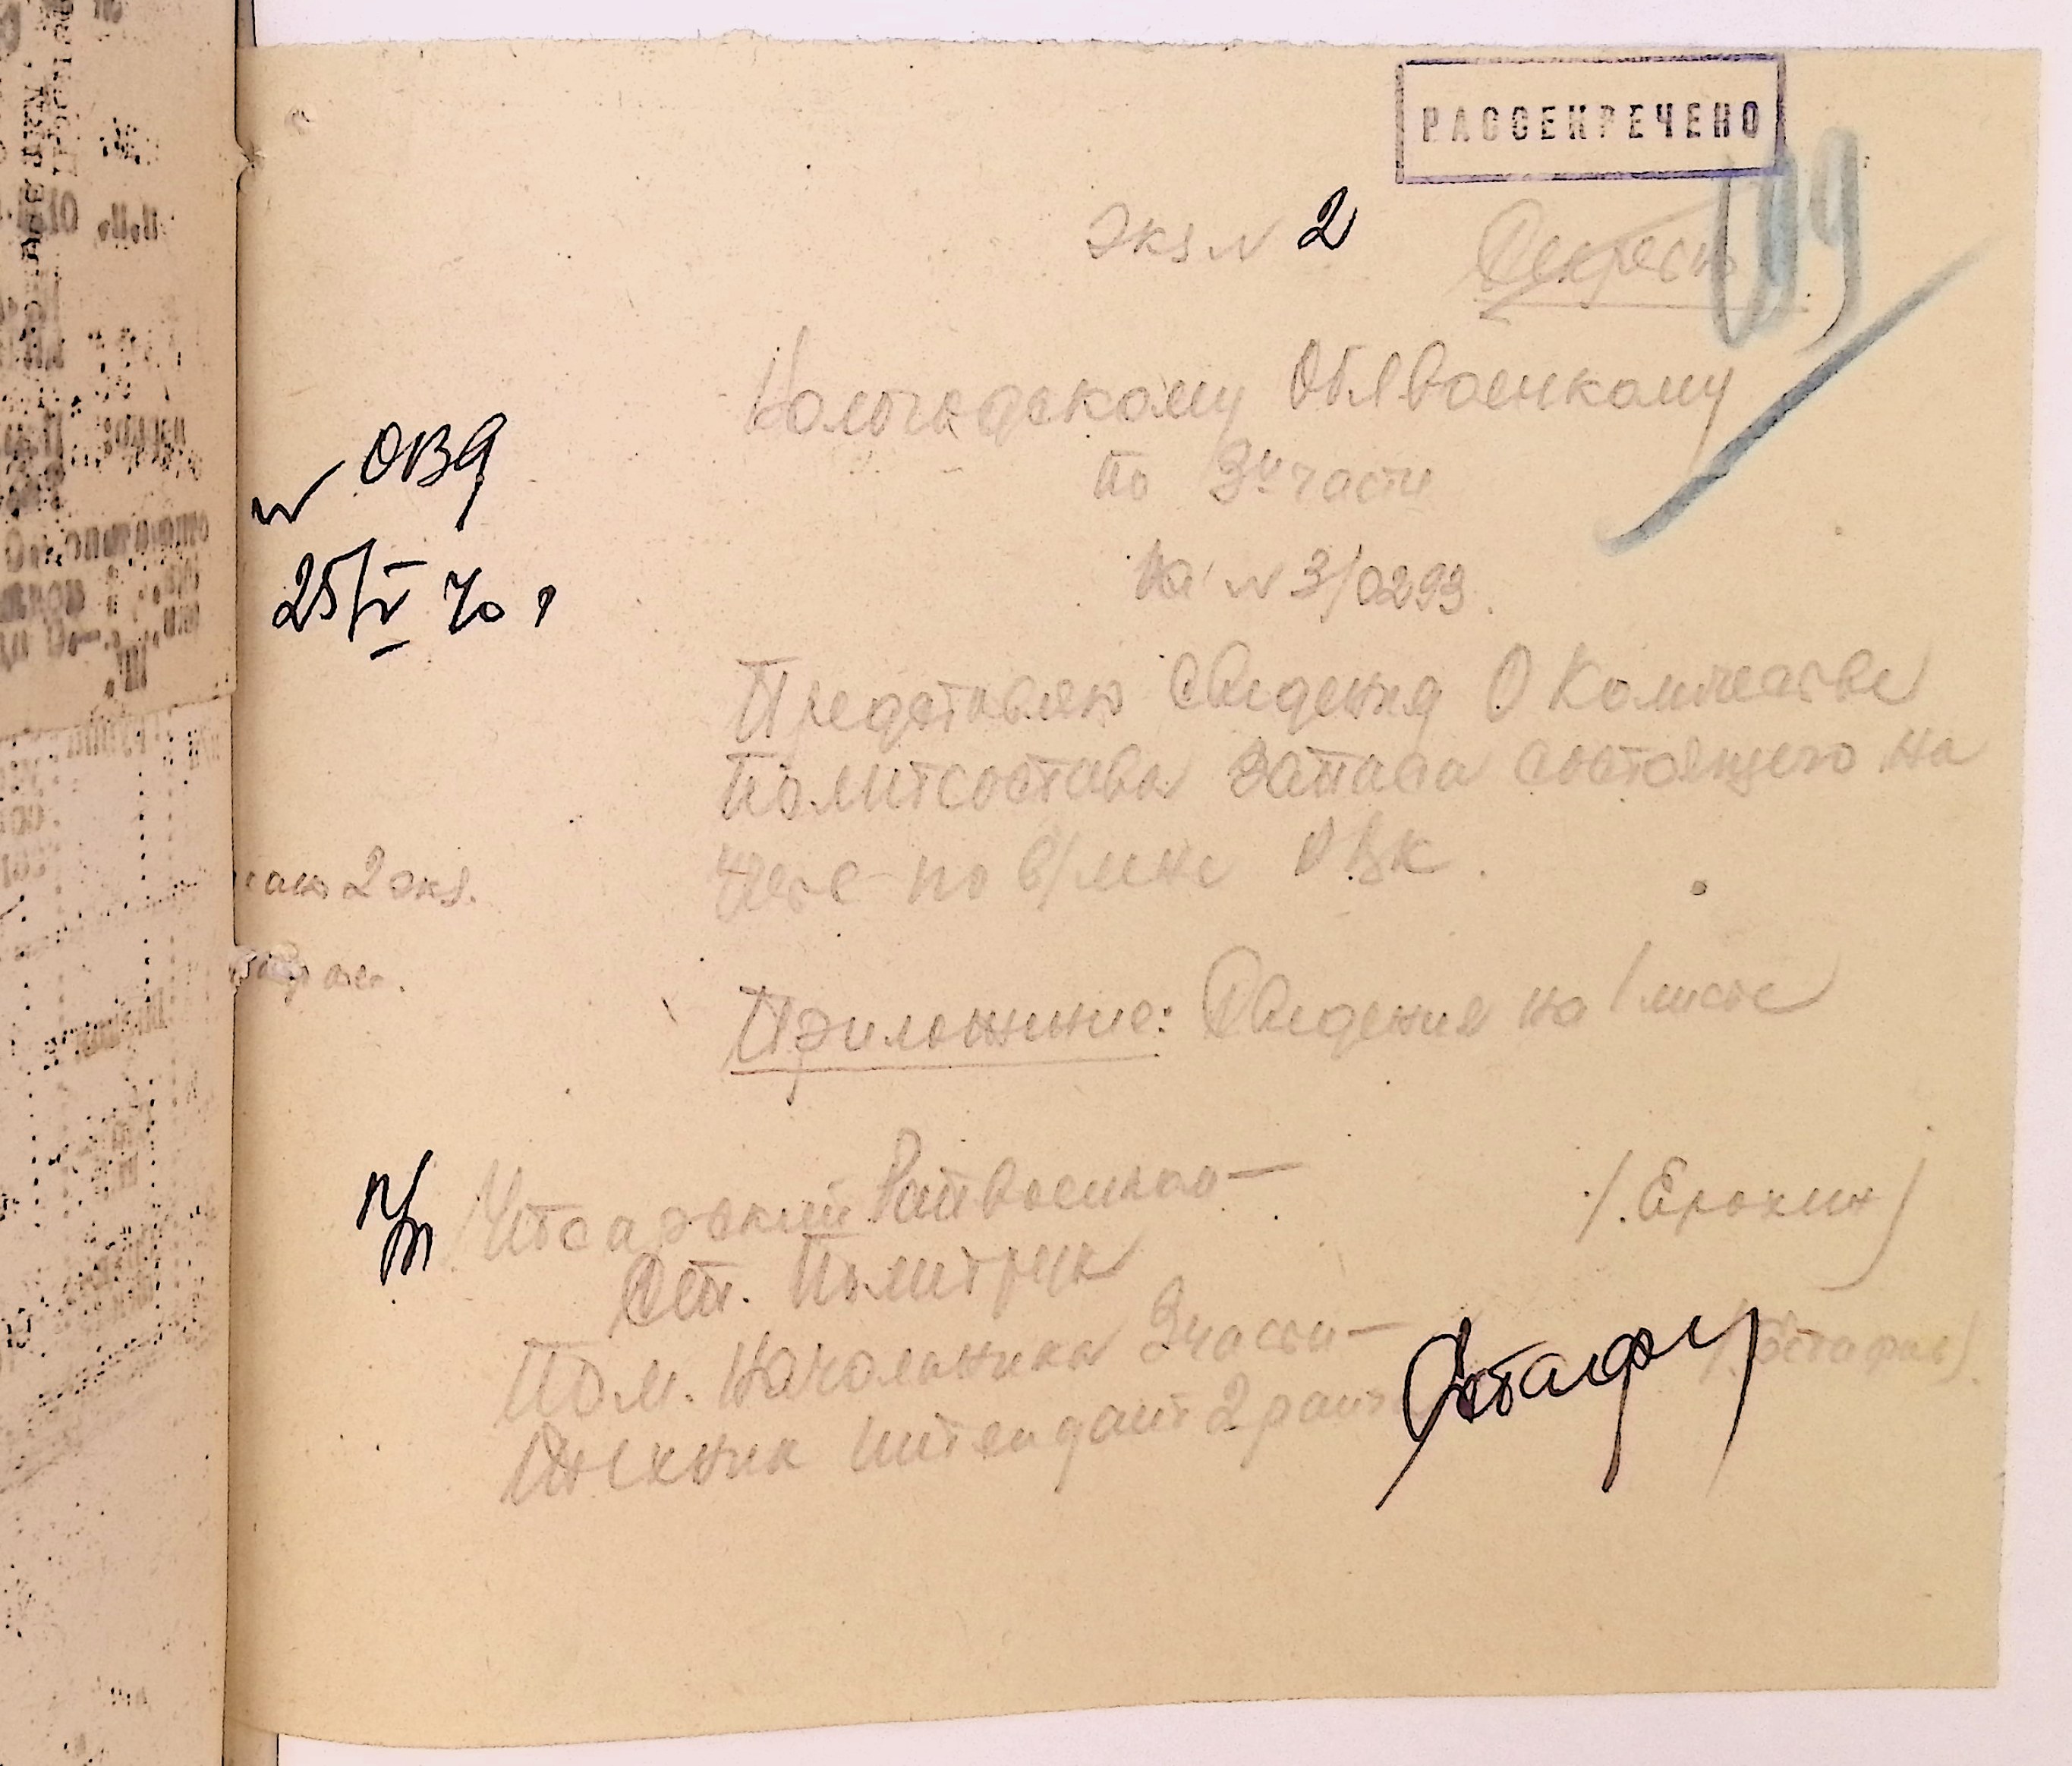 РАССЕКРЕЧЕНО
Экз № 2
Секретно
Вологодскому Облвоенкому
по 3й части
На № 3/0293.
№ 089
25/V 40 г
Представляю Сведения О Количестве
политсостава запаса состоящего на
учете по в/и ОВК.
2 экз.
Приложение: Сведения на 1 листе
п/п Райвоенком— /.Ерохин/
Ст. Политрук
Пом. Начальника 3 части—
Техник Интендант 2 ранга